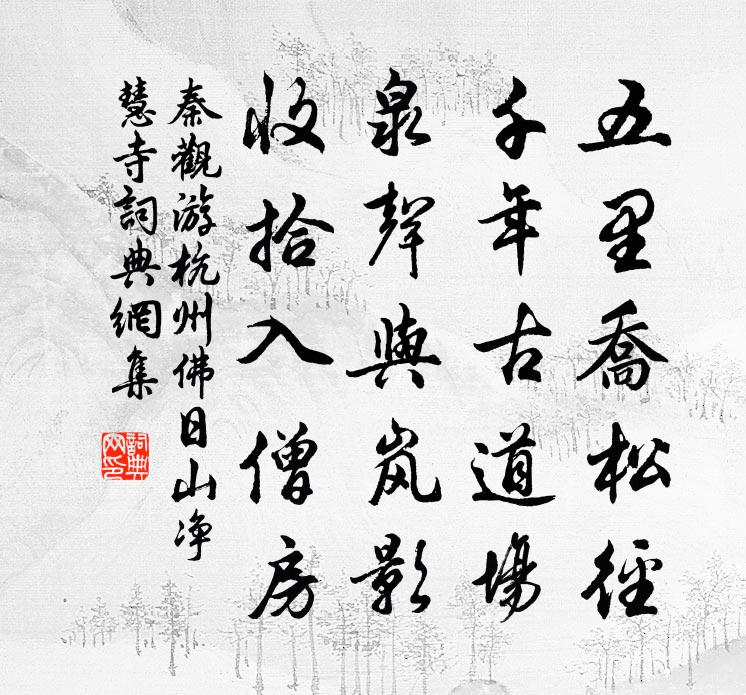 五里喬松徑
千年古道場
泉聲與岚影
收拾入僧房
秦觀游杭州佛日山净
慧寺詞典網集
詞典网印